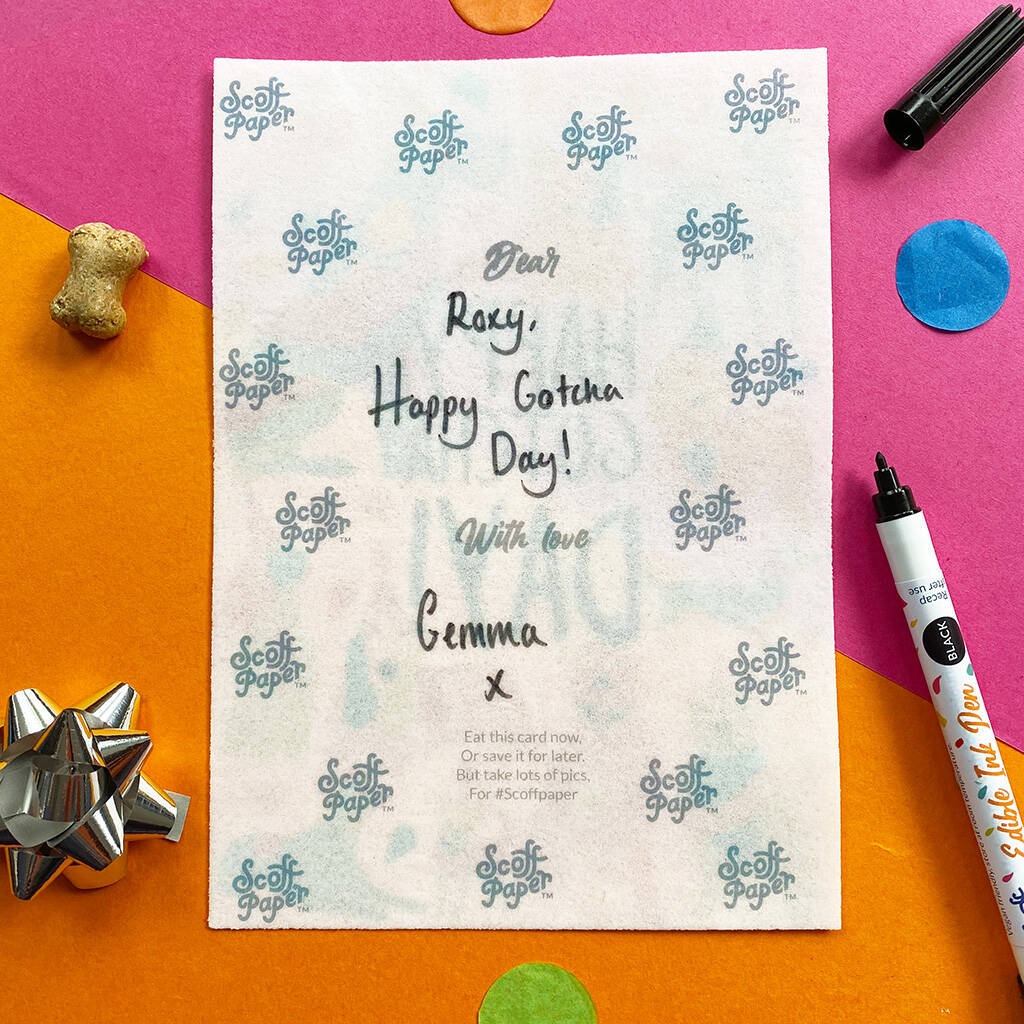 Scoff Paper™
Scoff Paper™
Scoff Paper™
Scoff Paper™
Scoff Paper™
Scoff Paper™
Dear
Roxy,
Happy Gotcha
Day!
Scoff Paper™
Scoff Paper™
Scoff Paper™
Scoff Paper™
With love
Gemma
x
Scoff Paper™
Scoff Paper™
Eat this card now,
Or save it for later.
But take lots of pics,
For #Scoffpaper
Scoff Paper™
Scoff Paper™
Scoff Paper™
Scoff Paper™
Scoff Paper™
Recap
after use
BLACK
Edible Ink Pen